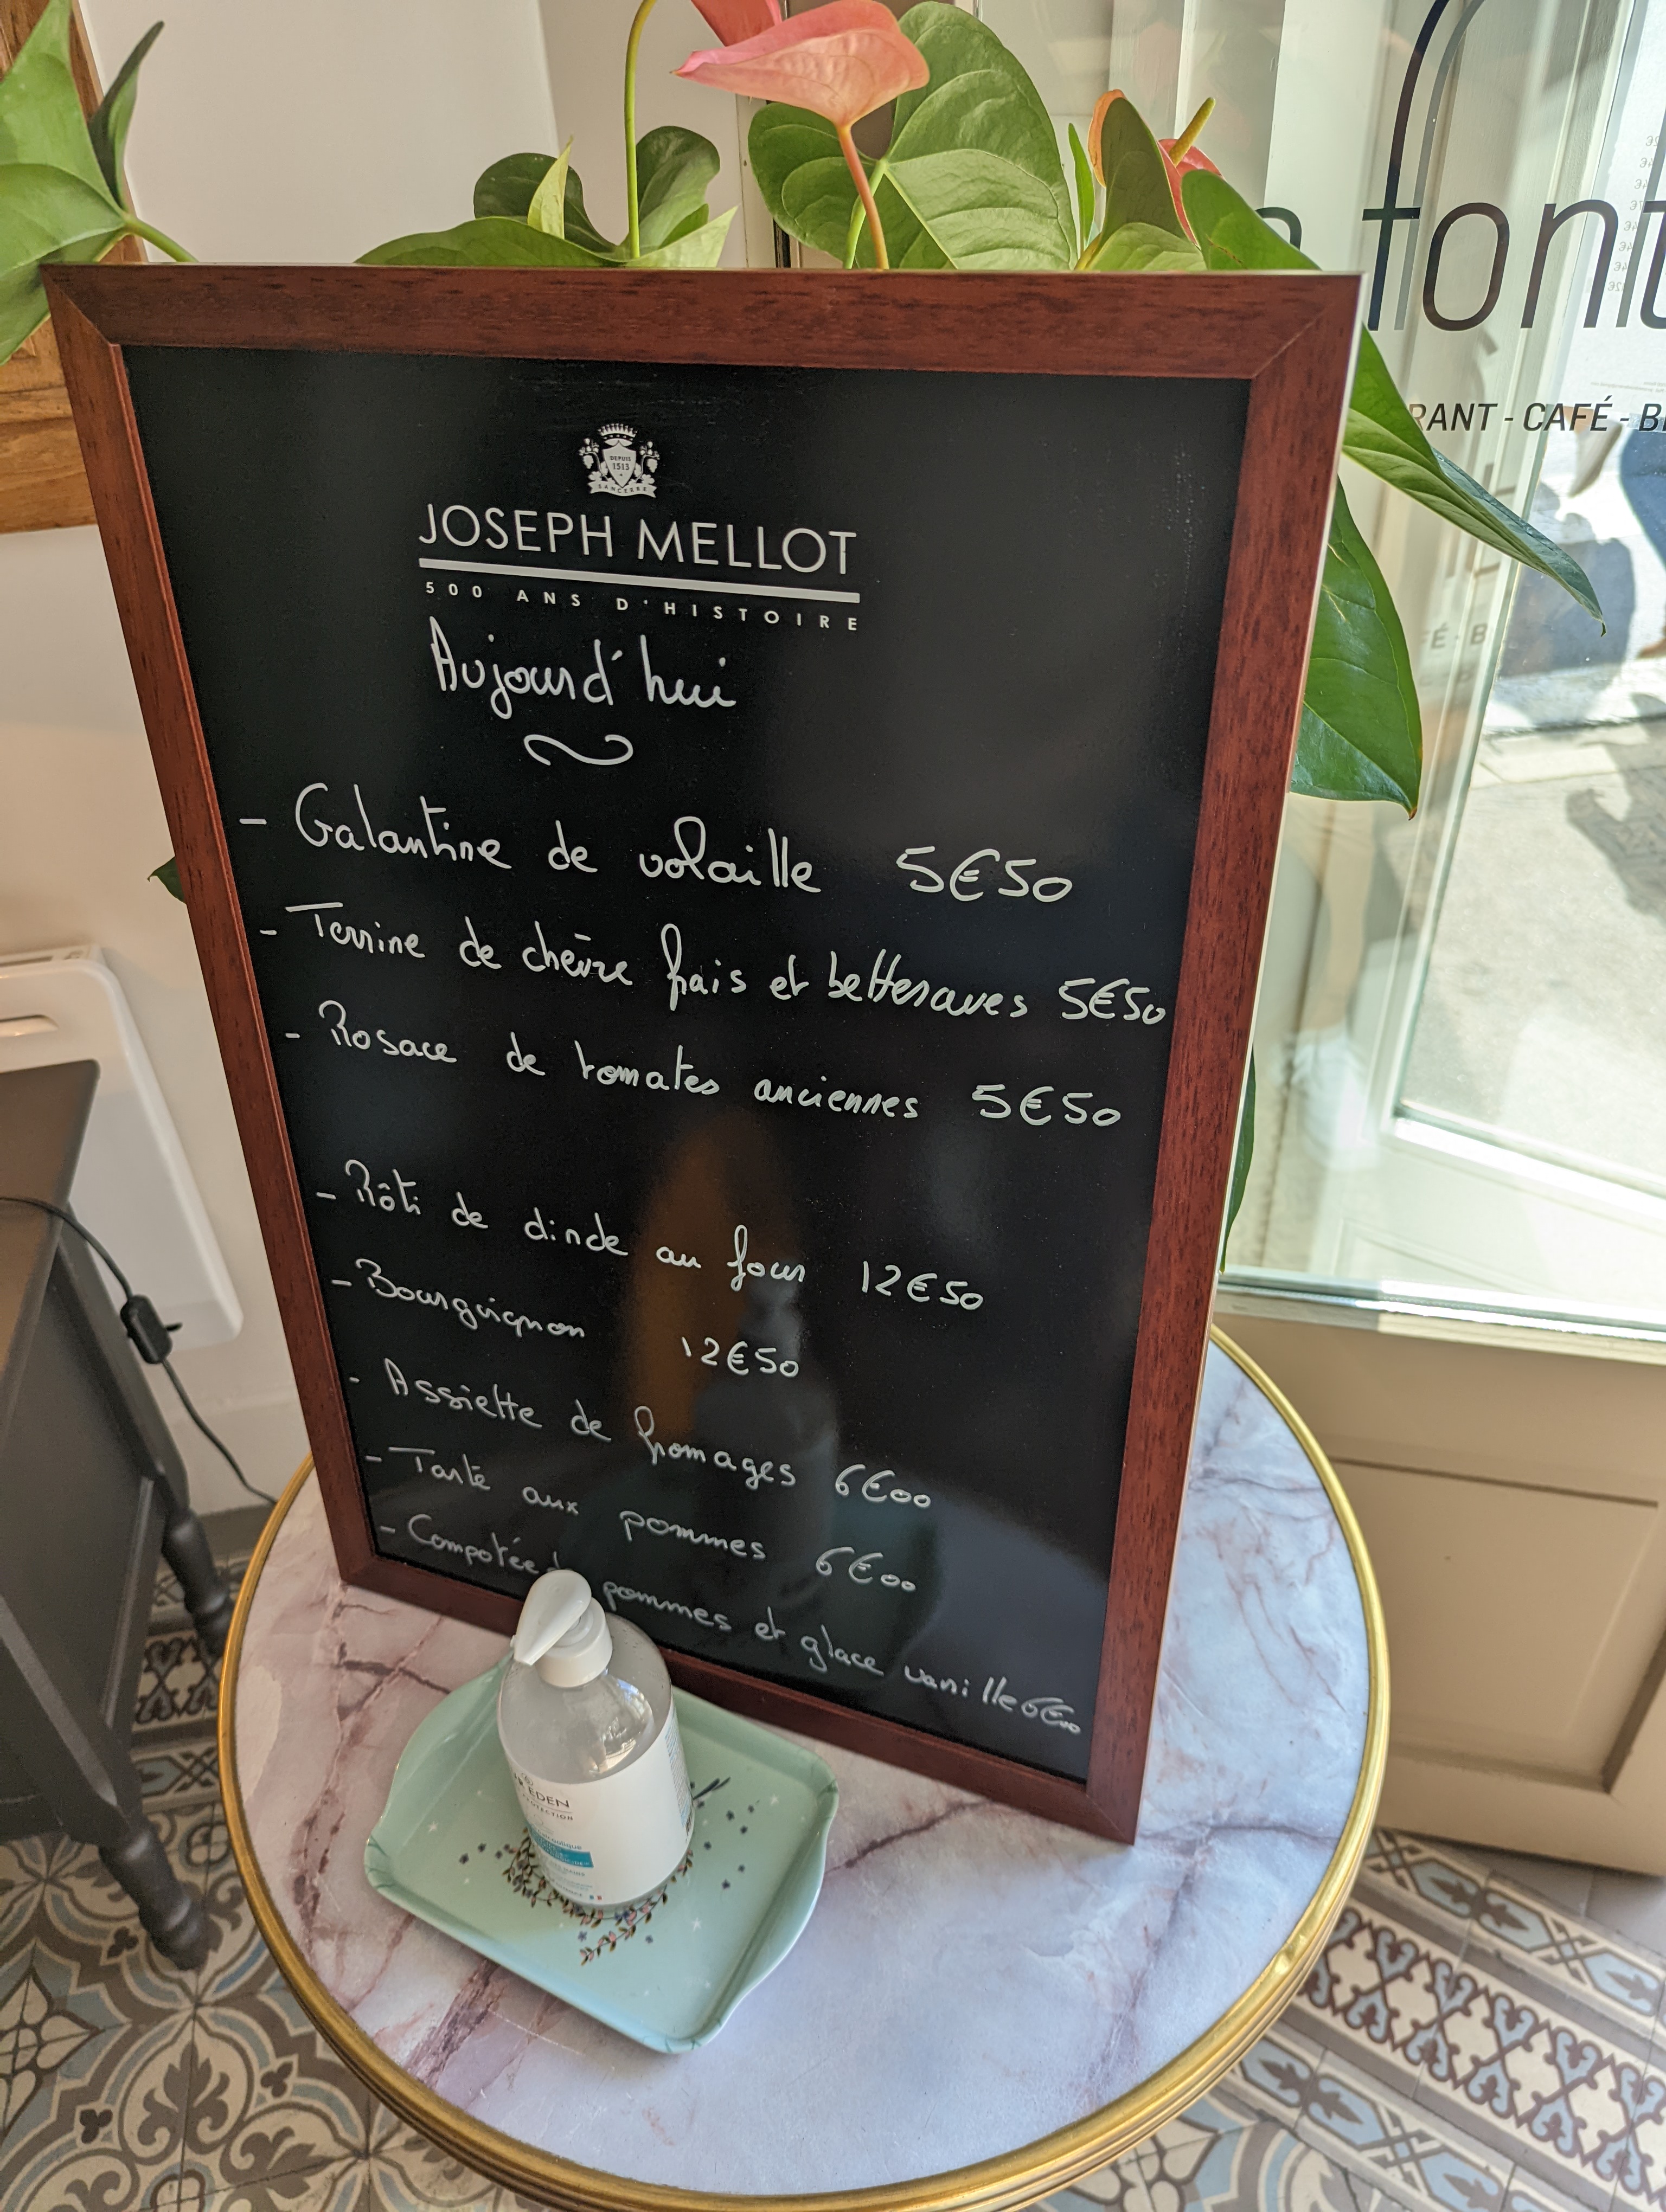 DEPUIS
1513
SANCERRE
JOSEPH MELLOT
500 ANS D'HISTOIRE
Aujourd'hui
- Galantine de volaille 5€50
- Terrine de chèvre frais et betteraves 5€50
- Rosace de tomates anciennes 5€50
- Rôti de dinde au four 12€50
- Bourguignon 12€50
- Assiette de fromages 6€00
- Tarte aux pommes 6€00
- Compotée pommes et glace vanille 6€00
font
RANT - CAFÉ - B
EDEN